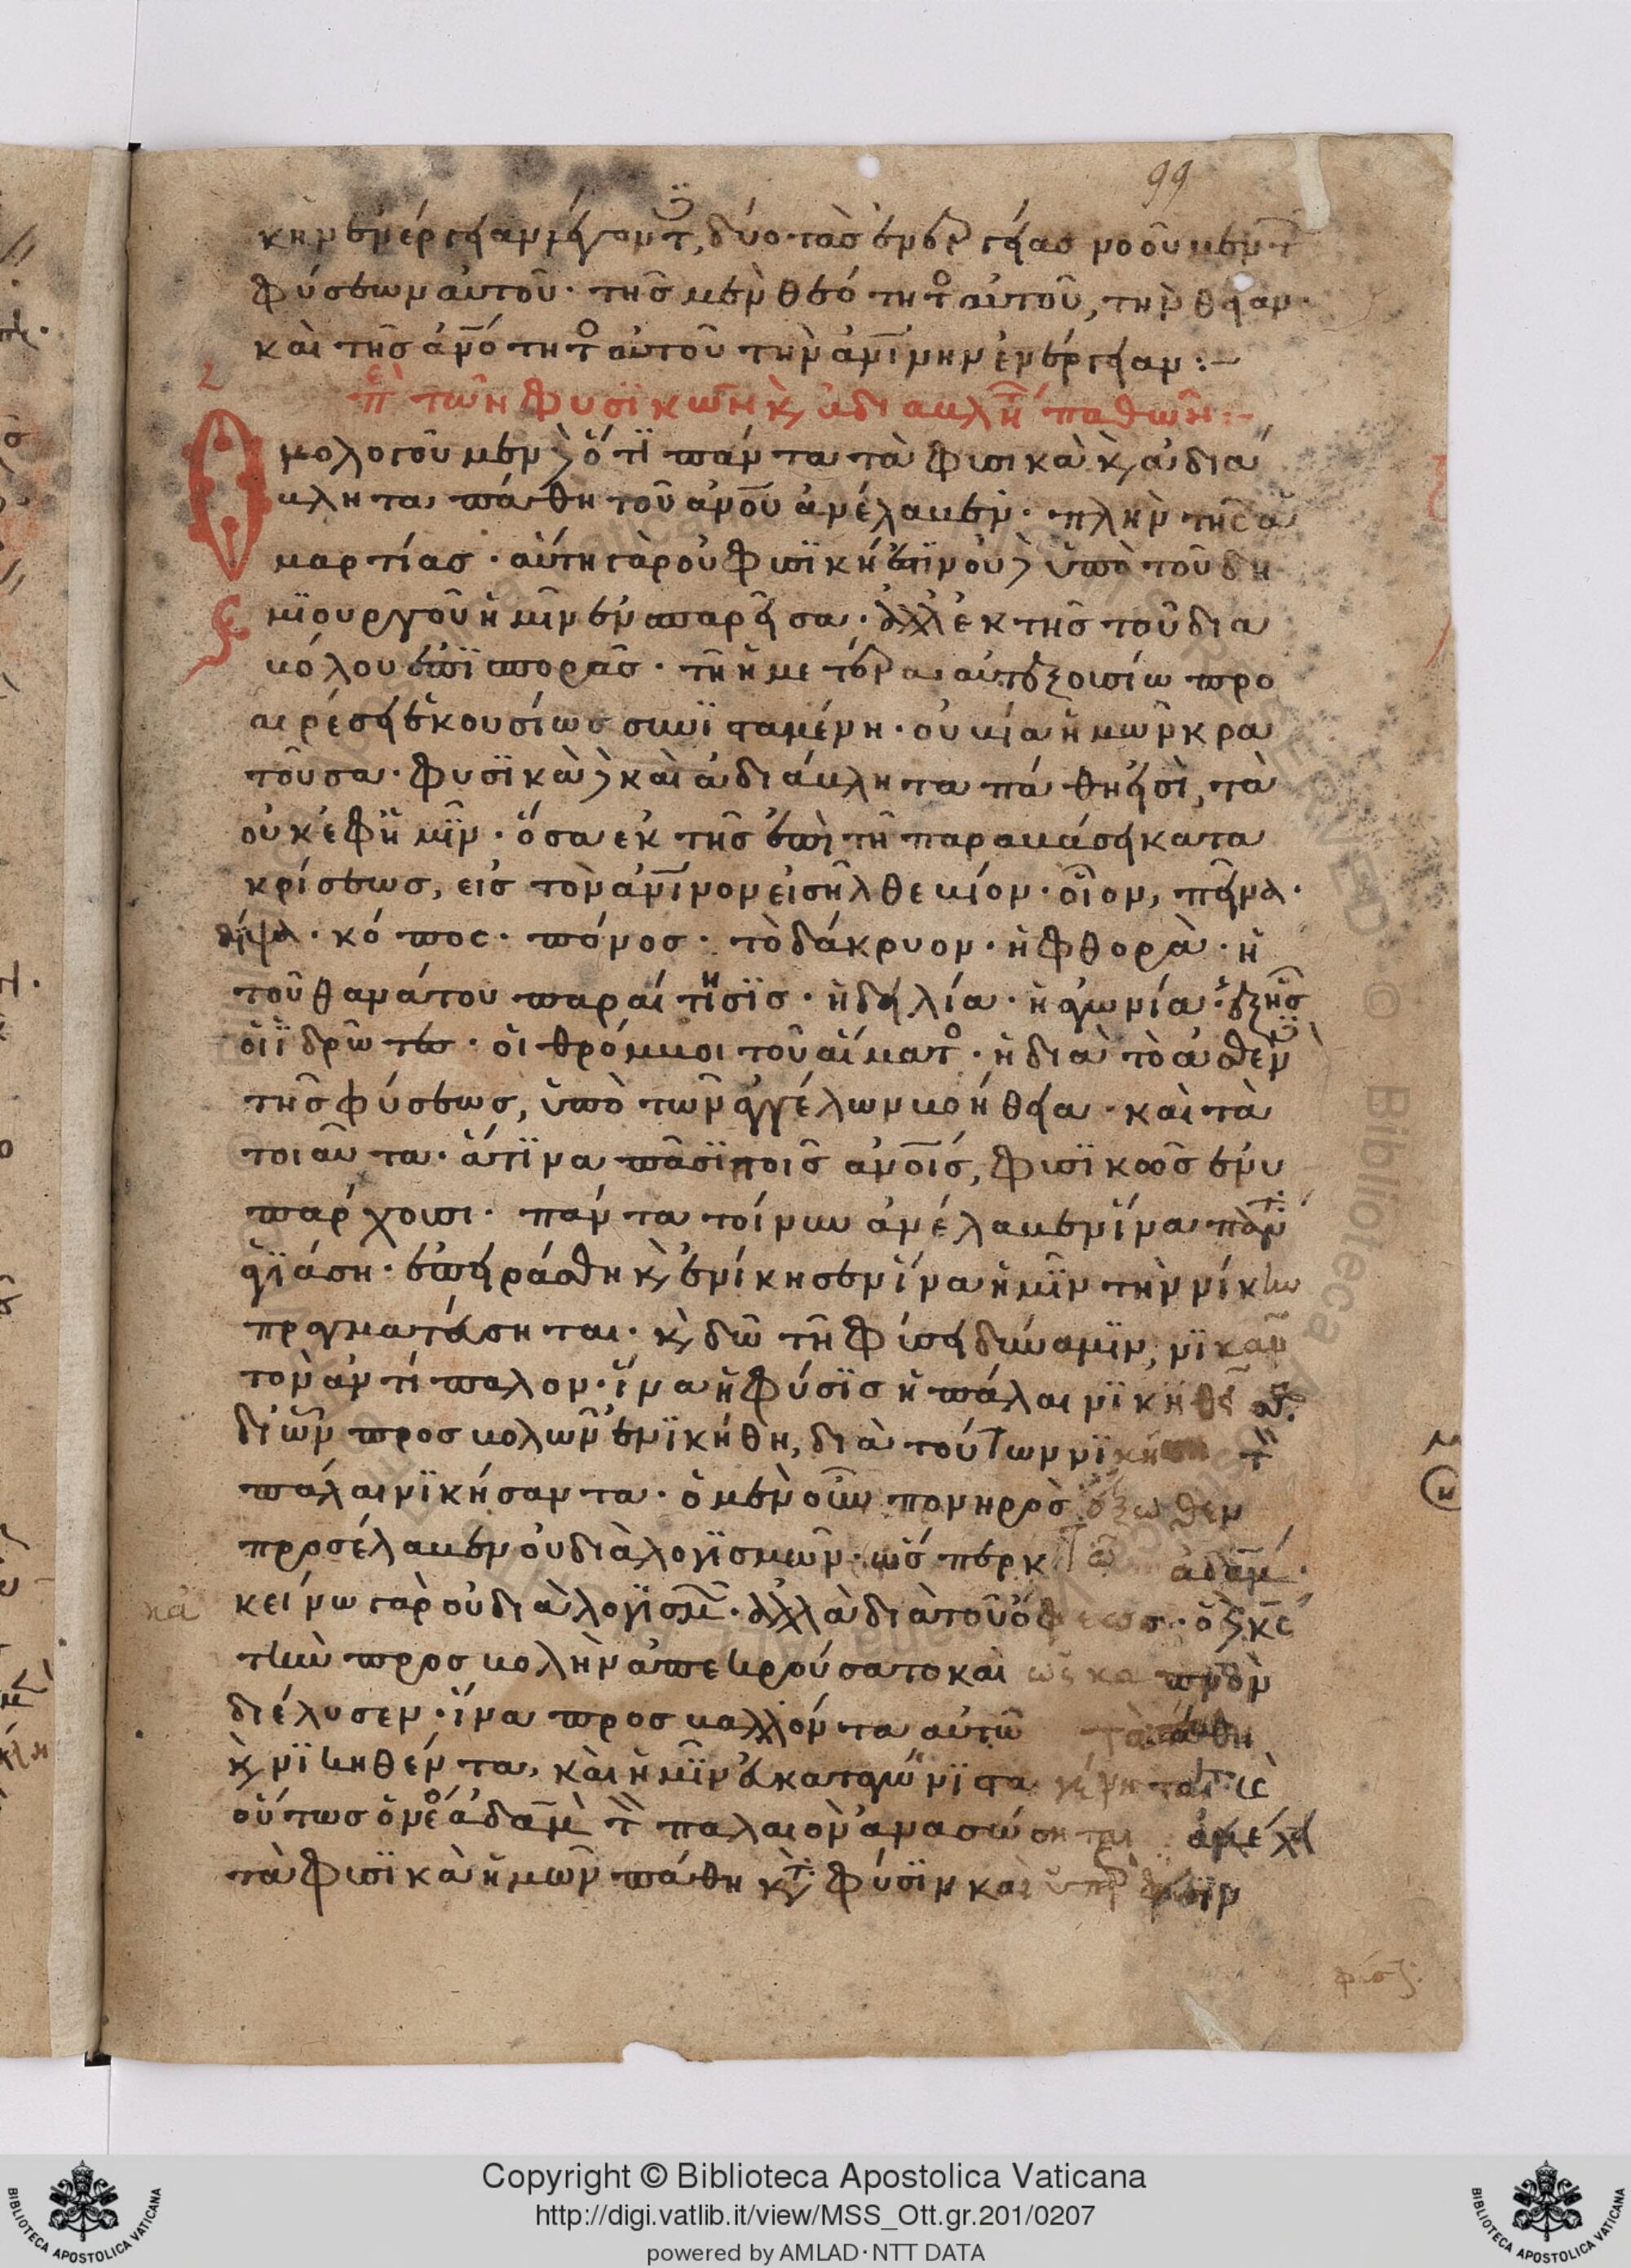 99
κὴν ἐνέργειαν λέγοντ, δύο τὰσ ἐνεργείας νοοῦμεν τ
φύσεων αὐτοῦ· τῆσ μὲν θεότητο αὐτοῦ, τὴν θείαν·
καὶ τῆσ ἀνότητο αὐτοῦ τὴν ἀνίνην ἐνέργειαν:–
πε τῶν φυσϊκῶν κ ἀδιαβλή παθῶν:–
Ὁμολογοῦμεν δ ὅτϊ πάντα τὰ φυσικὰ κ ἀδιά
βλητα πάθη τοῦ ἀνου ἀνέλαβεν· πλὴν τῆς ἁ
μαρτίασ· αὕτη γὰρ οὐ φυσϊκή ἐστϊν οὐδ ὑπὸ τοῦ δη
μϊουργοῦ ἡμῖν ἐνσπαρεῖσα· ἀλλ ἐκ τῆσ τοῦ δια
βόλου ἐπϊσπορᾶσ· τῆ ἡμετέρα αὐτεξουσίω προ
αιρέσει ἑκουσίως συνϊσταμένη· οὐ βία ἡμῶν κρα
τοῦσα· φυσϊκὰ δ καὶ ἀδιάβλητα πάθη εἰσὶ, τὰ
οὐκ ἐφ ἡμῖν· ὅσα ἐκ τῆσ ἐπὶ τῆ παραβάσει κατα
κρίσεωσ, εἰσ τὸν ἀνίνον εἰσῆλθε βίον· οἷον, πεῖνα·
δίψα· κόπος· πόνοσ· τὸ δάκρυον· ἡ φθορὰ· ἡ
τοῦ θανάτου παραίτησϊσ· ἡ δειλία· ἡ ἀγωνία· ἐξ ἧσ
οἱ ϊδρῶτεσ· οἱ θρόμβοι τοῦ αἵματο· ἡ διὰ τὸ ἀσθεν
τῆσ φύσεωσ, ὑπὸ τῶν ἀγγέλων βοήθεια· καὶ τὰ
τοιαῦτα· ἅτϊνα πᾶσϊ τοῖσ ἀνοισ, φυσϊκῶσ ἐνυ
πάρχουσι· πάντα τοίνυν ἀνέλαβεν ἵνα πάντ
ἁγϊάση· ἐπειράσθη κ ἐνίκησεν ἵνα ἡμῖν τὴν νίκην
πραγματεύσηται· κ δῶ τῆ φύσει δύναμϊν, νϊκᾶν
τὸν ἀντίπαλον· ἵνα ἡ φύσϊσ ἡ πάλαι νϊκηθεῖσα·
δι ὧν προσβολῶν ἐνϊκήθη, διὰ τούτων νϊκήση τ
πάλαι νϊκήσαντα· ὁ μὲν οὖν πονηρὸσ ἔξωθεν
προσέλαβεν οὐ διὰ λογϊσμῶν· ὥσπερ κ τῶ ἀδάμ·
κείνω γὰρ οὐ διὰ λογϊσμ· ἀλλὰ διὰ τοῦ ὄφεωσ· ὁ δ κς
τὴν προσβολὴν ἀπεκρούσατο καὶ ὡς καπνὸν
διέλυσεν· ἵνα προσβαλλόντα αὐτῶ τὰ πάθη
κ νϊκηθέντα, καὶ ἡμῖν εὐκαταγώνϊστα γένηται· κ
οὕτωσ ὁ νέο ἀδὰμ τ παλαιὸν ἀνασώσηται· ἀμέλει
τὰ φυσϊκὰ ἡμῶν πάθη κατ φύσϊν καὶ ὑπὲρ φύσϊν
Copyright © Biblioteca Apostolica Vaticana
http://digi.vatlib.it/view/MSS_Ott.gr.201/0207
powered by AMLAD·NTT DATA